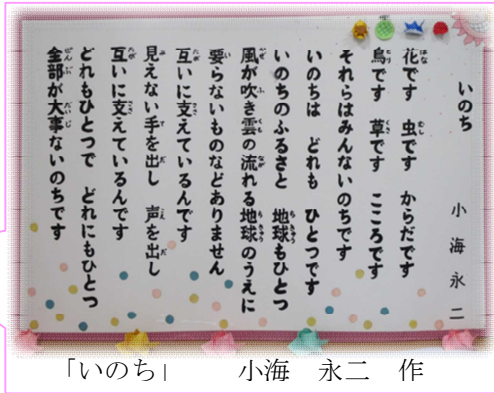 いのち
小海永二
花です 虫です からだです
鳥です 草です こころです
それらはみんないのちです
いのちは どれも ひとつです
いのちのふるさと 地球もひとつ
風が吹き雲の流れる地球のうえに
要らないものなどありません
互いに支えているんです
見えない手を出し 声を出し
互いに支えているんです
どれもひとつで どれにもひとつ
全部が大事ないのちです
「いのち」 小海 永二 作